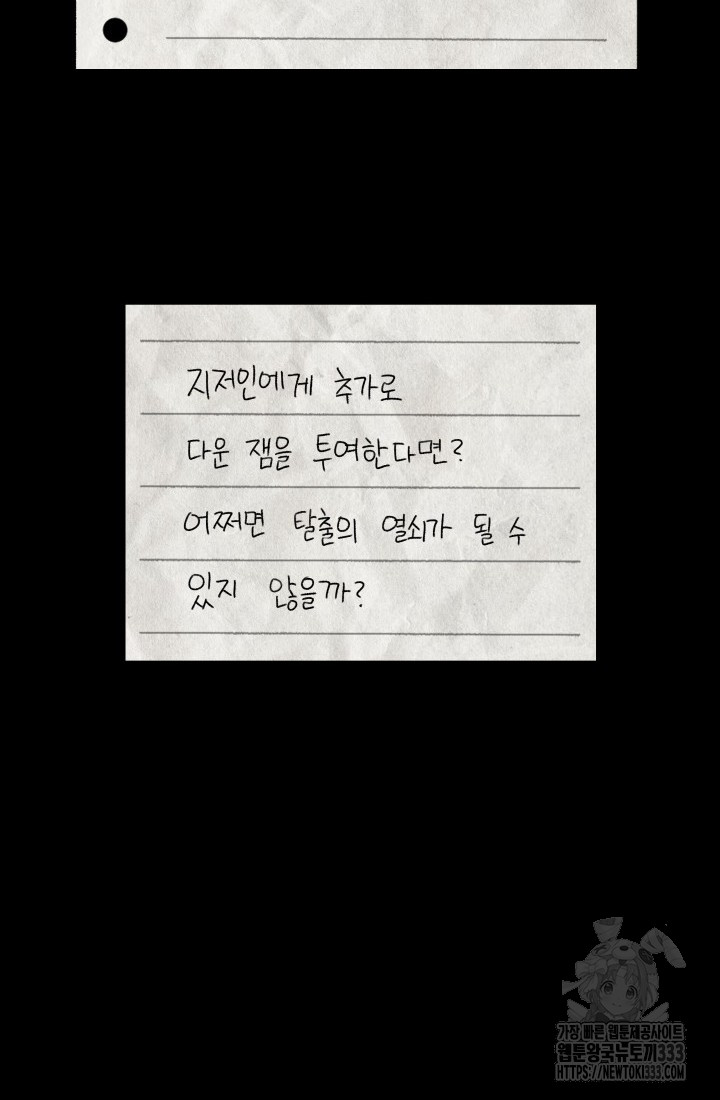 지저인에게 추가로
다운 잼을 투여한다면?
어쩌면 탈출의 열쇠가 될 수
있지 않을까?
가장 빠른 웹툰제공사이트
웹툰왕국뉴토끼333
HTTPS://NEWTOKI333.COM